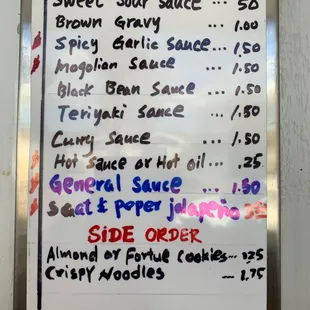 Sweet Sour Sauce ... 50
Brown Gravy ... 1.00
Spicy Garlic Sauce... 1.50
Mogolian Sauce ... 1.50
Black Bean Sauce ... 1.50
Teriyaki Sauce ... 1.50
Curry Sauce ... 1.50
Hot Sauce or Hot oil... .25
General Sauce ... 1.50
Saat & peper jalapeño
SiDE ORDER
Almond or Fortue Cookies... 1.25
Crispy Noodles --- 1.75